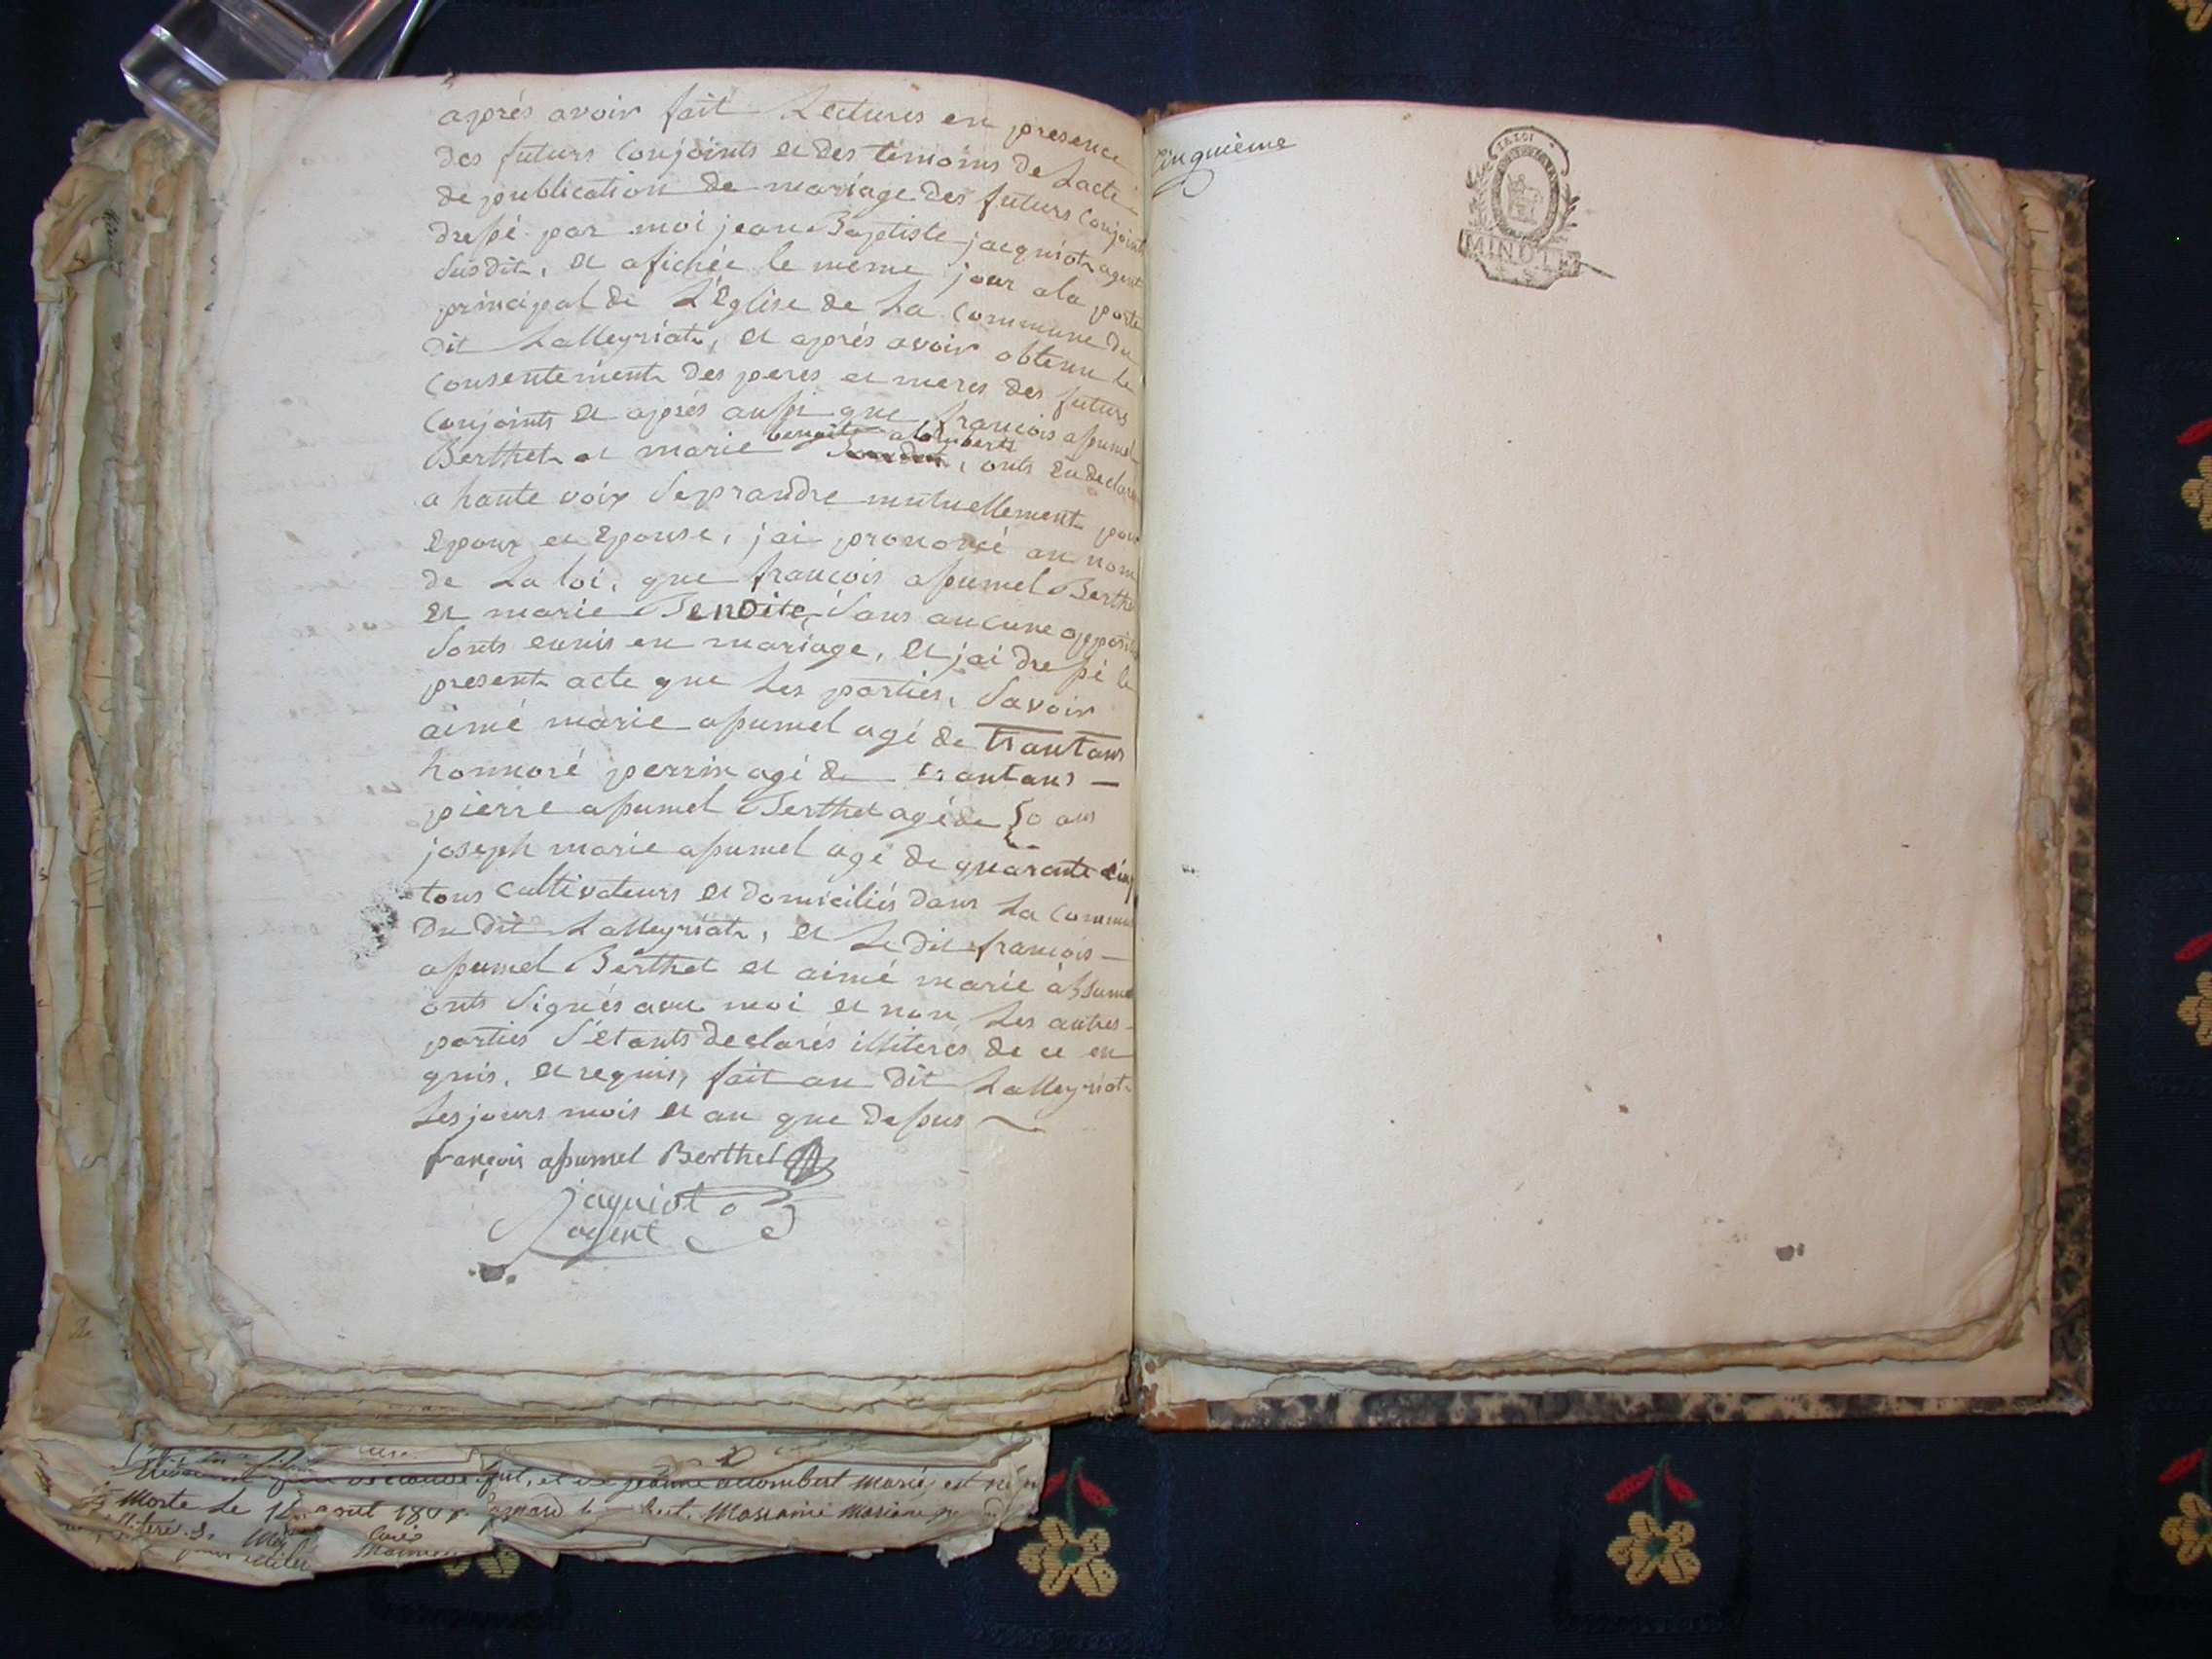 après avoir fait Lectures en presence
des futurs Conjoints et des temoins de Lacte
de publication de mariage des futurs Conjoints
dressé par moi jean Baptiste jacquiot agent
susdit, et afichée le meme jour a la porte
principal de L'Eglise de La Commune du
dit Lalleyriat, et aprés avoir obtenu le
Consentement des peres et meres des futurs
Conjoints et aprés aussi que françois assumel
benoite alombert
Berthet et marie , onts eu declaré
a haute voix se prandre mutuellement pour
epoux et epouse, jai prononcé au nom
de La loi, que françois assumel Berthet
et marie Benoite, sans aucune opposition
sonts eunis en mariage, et jai dressé le
present acte que Les parties, savoir
aimé marie assumel agé de trantans
honnoré perrin agé de trantans
pierre assumel Berthet agé de 50 ans
joseph marie assumel agé de quarante cinq
tous cultivateurs et domiciliés dans La commune
du dit Lalleyriat, et Le dit françois
assumel Berthet et aimé marie assumel
onts signés avec moi et non Les autres
parties s'etants declarés illiterés de ce en
quis, et requis, fait au dit Lalleyriat
Les jours mois et an que dessus
françois assumel Berthet
jaquiot
agent
Cinquième
LA LOI
MINUTE
jeanne allombert marié est
Morte Le 12 aout